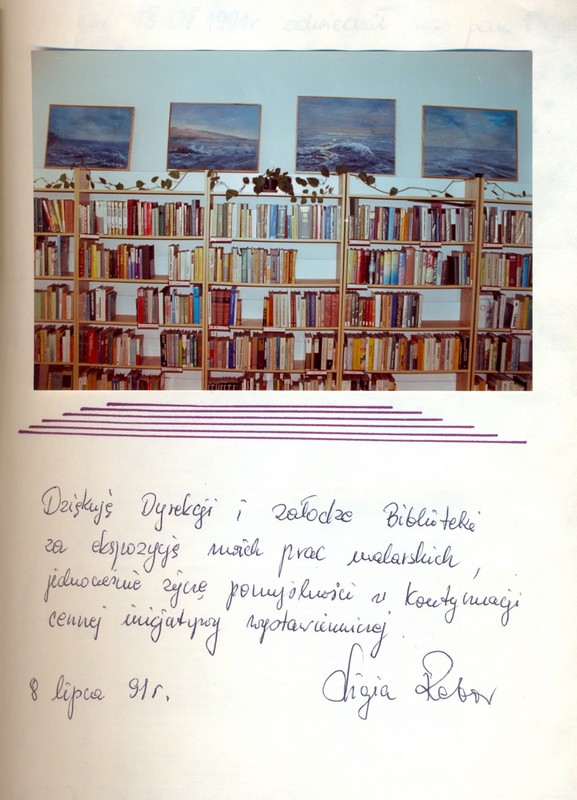 Dziękuję Dyrekcji i załodze Biblioteki
za ekspozycję moich prac malarskich,
jednocześnie życzę pomyślności w kontynuacji
cennej inicjatywy wystawienniczej.
8 lipca 91 r.
Ligia